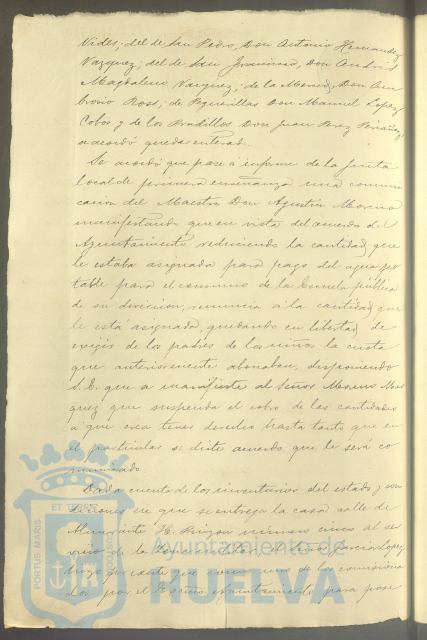 Vides; del de San Pedro, Don Antonio Hernandez
Vazquez; del de San Francisco, Don Andrés
Magdaleno Vazquez; de la Merced, Don Am
brosio Ross; de Peguerillas Don Manuel Lopez
Cobos y de los Pradillos Don Juan Perez
acordó quedar enterado.
Se acordó que pase á informe de la Junta
local de primera enseñanza una comuni
cación del Maestro Don Agustín Moreno
manifestando que en vista del acuerdo del
Ayuntamiento reduciendo la cantidad que
le estaba asignada para pago del agua po
table para el consumo de la Escuela pública
de su direccion, renuncia á la cantidad que
le está asignada, quedando en libertad de
exijir de los padres de los niños la cuota
que anteriormente abonaban, disponiendo
S.E. que se manifieste al Señor Moreno Mar
quez que suspenda el cobro de las cantidades
á que crea tener derecho hasta tanto que en
el particular se dicte acuerdo que le será co
municado.
Dada cuenta de los inventarios del estado y con
diciones en que se entrega la casa calle de
Almirante H. Pinzon número cinco al ser
vicio de la Lopez
que como uno de los comisiona
dos por el Excmo. Ayuntamiento para pose
PORTUS MARIS
ET TERRE
CUSTODIA
Ayuntamiento de
HUELVA